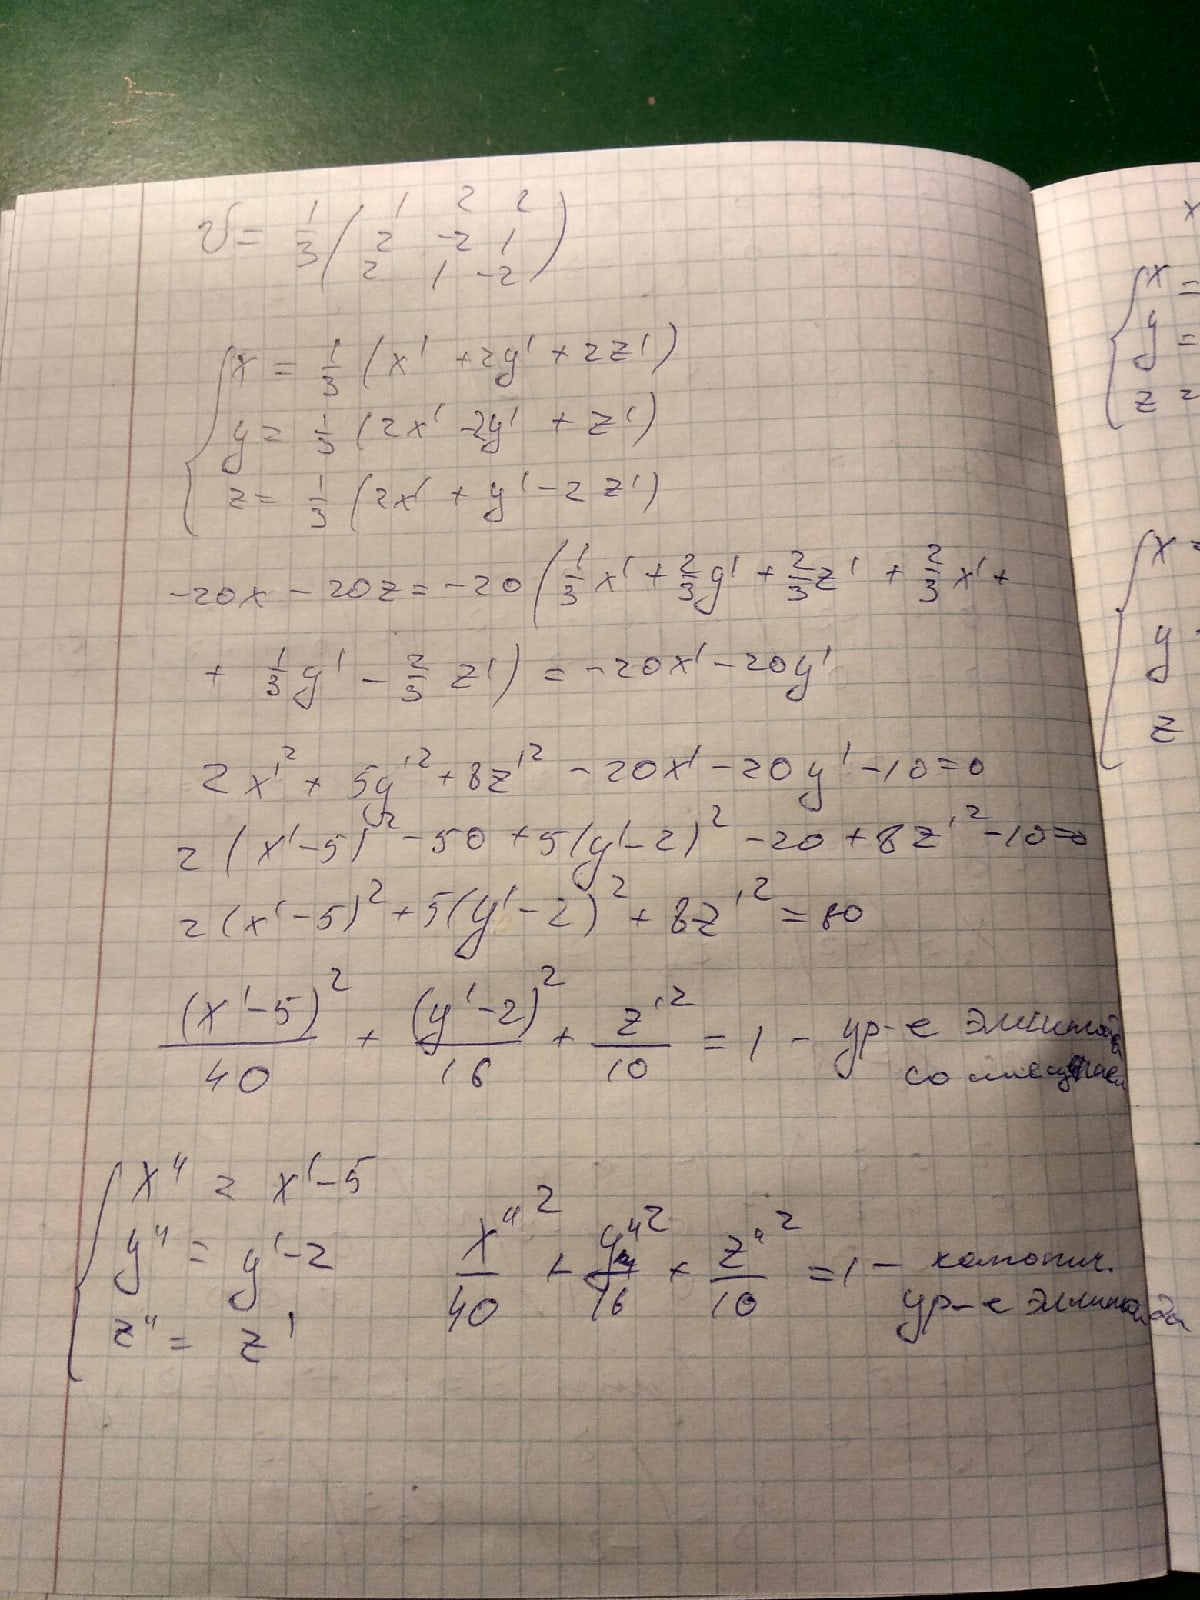 V = 1/3 ( 1 2 2
2 -2 1
2 1 -2 )
{ x = 1/3 (x' + 2y' + 2z')
y = 1/3 (2x' - 2y' + z')
z = 1/3 (2x' + y' - 2z')
-20x - 20z = -20 ( 1/3 x' + 2/3 y' + 2/3 z' + 2/3 x' +
+ 1/3 y' - 2/3 z' ) = -20x' - 20y'
2x'² + 5y'² + 8z'² - 20x' - 20y' - 10 = 0
2(x'-5)² - 50 + 5(y'-2)² - 20 + 8z'² - 10 = 0
2(x'-5)² + 5(y'-2)² + 8z'² = 80
(x'-5)²/40 + (y'-2)²/16 + z'²/10 = 1 - ур-е эллипсоида
со смещением
{ x'' = x' - 5
y'' = y' - 2
z'' = z'
x''²/40 + y''²/16 + z''²/10 = 1 - канонич.
ур-е эллипсоида
x
{ x =
y =
z =
{ x =
y
z